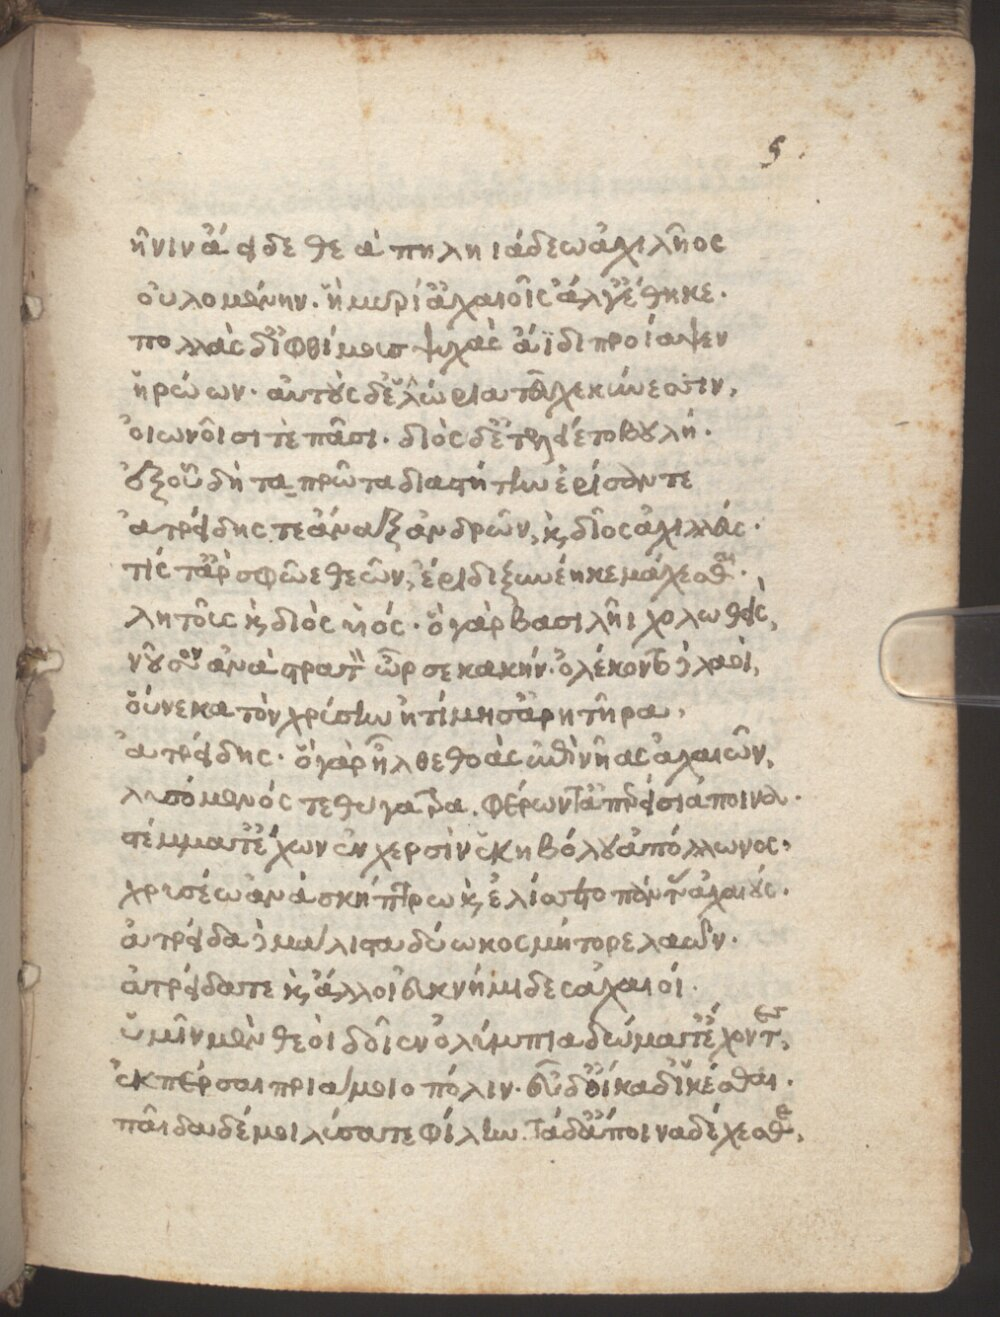 5.
ῆνιν ἄειδε θεὰ πηληιάδεω ἀχιλῆος
οὐλομένην. ἣ μυρί ἀχαιοῖς ἄλγε ἔθηκε.
πολλὰς δ ἰφθίμους ψυχὰς ἄϊδι προίαψεν
ἡρώων. αὐτοὺς δὲ ἑλώρια τεῦχε κύνεσσιν,
οἰωνοῖσί τε πᾶσι. διὸς δ ἐτελείετο βουλή.
ἐξ οὗ δὴ τα πρῶτα διαστήτην ἐρίσαντε
ἀτρείδης τε ἄναξ ἀνδρῶν, κ, δῖος ἀχιλλεύς.
τίς τ ἄρ σφῶε θεῶν, ἔριδι ξυνέηκε μάχεσθαι.
λητοῖς κ, διὸς υἱός. ὃ γὰρ βασιλῆι χολωθεὶς,
νοῦσον ἀνὰ στρατὸν ὦρσε κακήν. ὀλέκοντο δὲ λαοὶ,
οὕνεκα τὸν χρύσην ἠτίμησ ἀρητῆρα,
ἀτρείδης. ὃ γὰρ ἦλθε θοὰς ἐπὶ νῆας ἀχαιῶν,
λυσόμενός τε θύγατρα. φέρων τ ἀπερείσι ἄποινα.
στέμματ ἔχων ἐν χερσὶν ἑκηβόλου ἀπόλλωνος.
χρυσέω ἀνὰ σκήπτρω κ, ἐλίσσετο πάντας ἀχαιούς.
ἀτρείδα δὲ μάλιστα δύω κοσμήτορε λαῶν.
ἀτρείδαι τε κ, ἄλλοι ἐυκνήμιδες ἀχαιοί.
ὑμῖν μὲν θεοὶ δοῖεν ὀλύμπια δώματ ἔχοντες,
ἐκπέρσαι πριάμοιο πόλιν. εὖ δ οἴκαδ ἱκέσθαι.
παῖδα δέ μοι λύσατε φίλην. τὰ δ ἄποινα δέχεσθε,